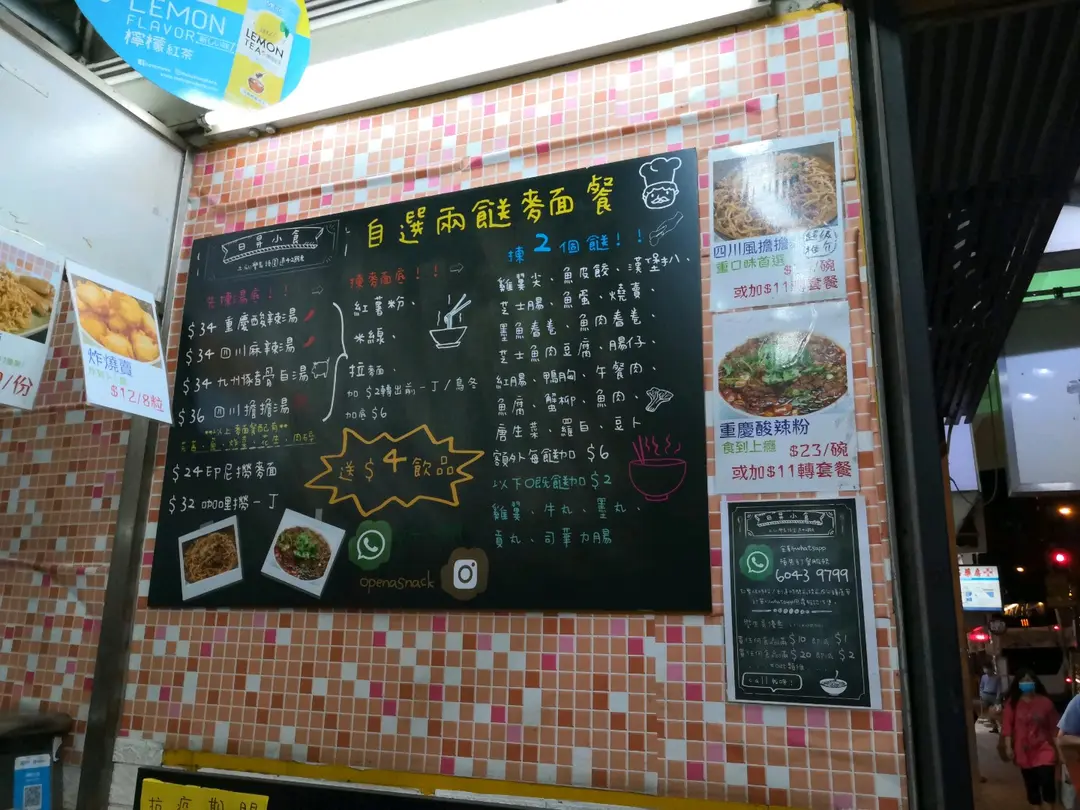 LEMON
FLAVOR
檸檬紅茶
LEMON
TEA
自選兩餸麥面餐
日昇小食
先揀湯底！！
$34 重慶酸辣湯
$34 四川麻辣湯
$34 九州豚骨白湯
$36 四川擔擔湯
$24 印尼撈麥面
$32 咖哩撈一丁
揀麥面底！！
紅薯粉、
米線、
拉麵、
加 $2轉出前一丁/烏冬
加底 $6
送 $4 飲品
揀 2 個餸！！
雞翼尖、魚皮餃、漢堡扒、
芝士腸、魚蛋、燒賣、
墨魚春卷、魚肉春卷、
芝士魚肉豆腐、腸仔、
紅腸、鴨胸、午餐肉、
魚腐、蟹柳、魚肉、
唐生菜、羅白、豆卜
額外每餸加 $6
以下嘅餸加 $2
雞翼、牛丸、墨丸、
貢丸、司華力腸
openasnack
/份
炸燒賣
$12/8粒
四川風擔擔
重口味首選
/碗
或加$11轉套餐
重慶酸辣粉
食到上癮 $23/碗
或加$11轉套餐
日昇小食
whatsapp
6043 9799
$10 $1
$20 $2
抗疫期間